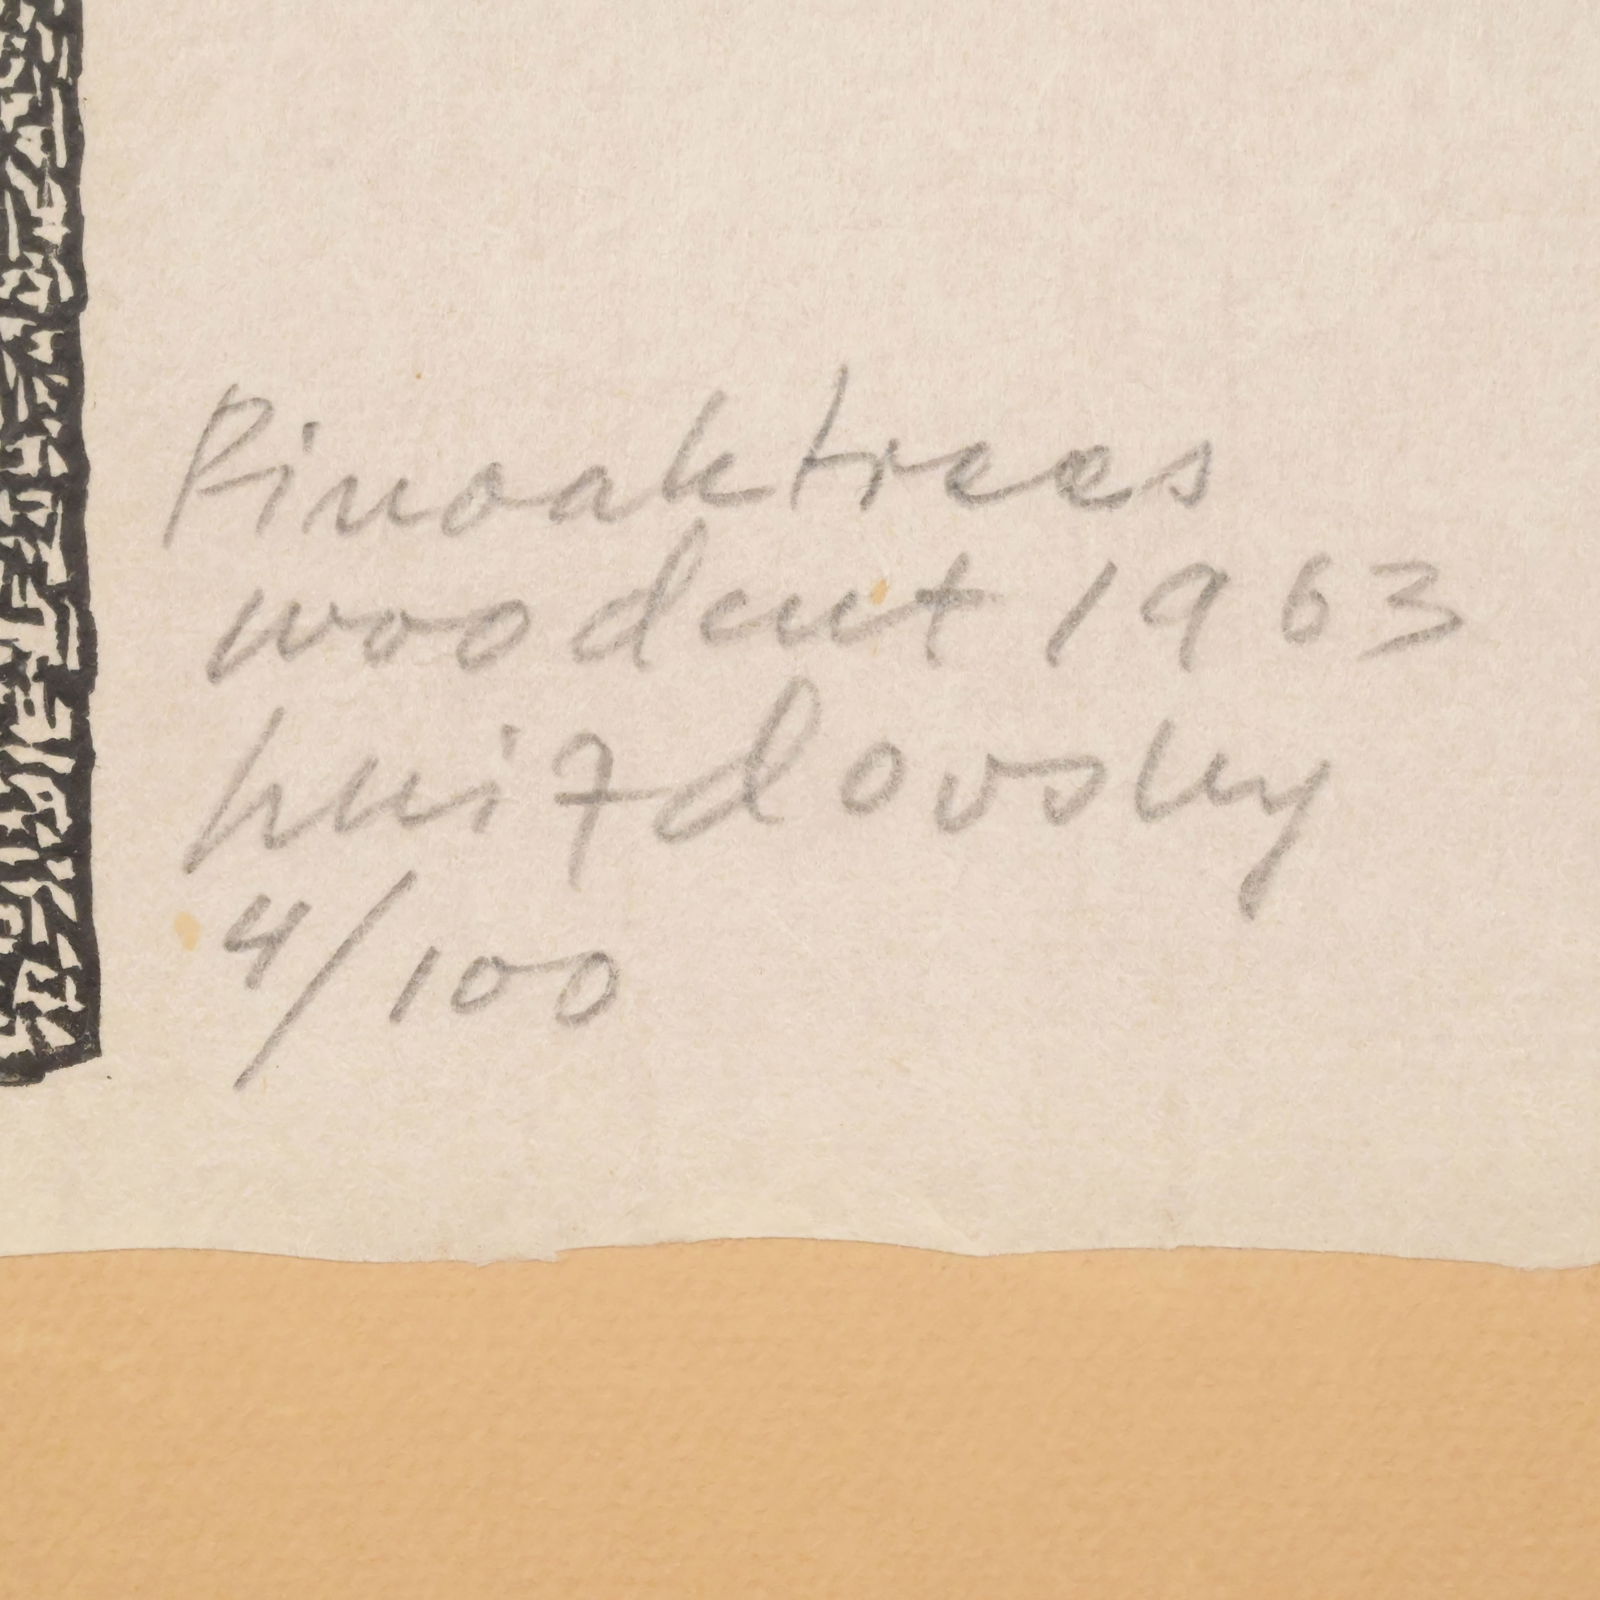 Pinoaktrees
woodcut 1963
hnizdovsky
4/100